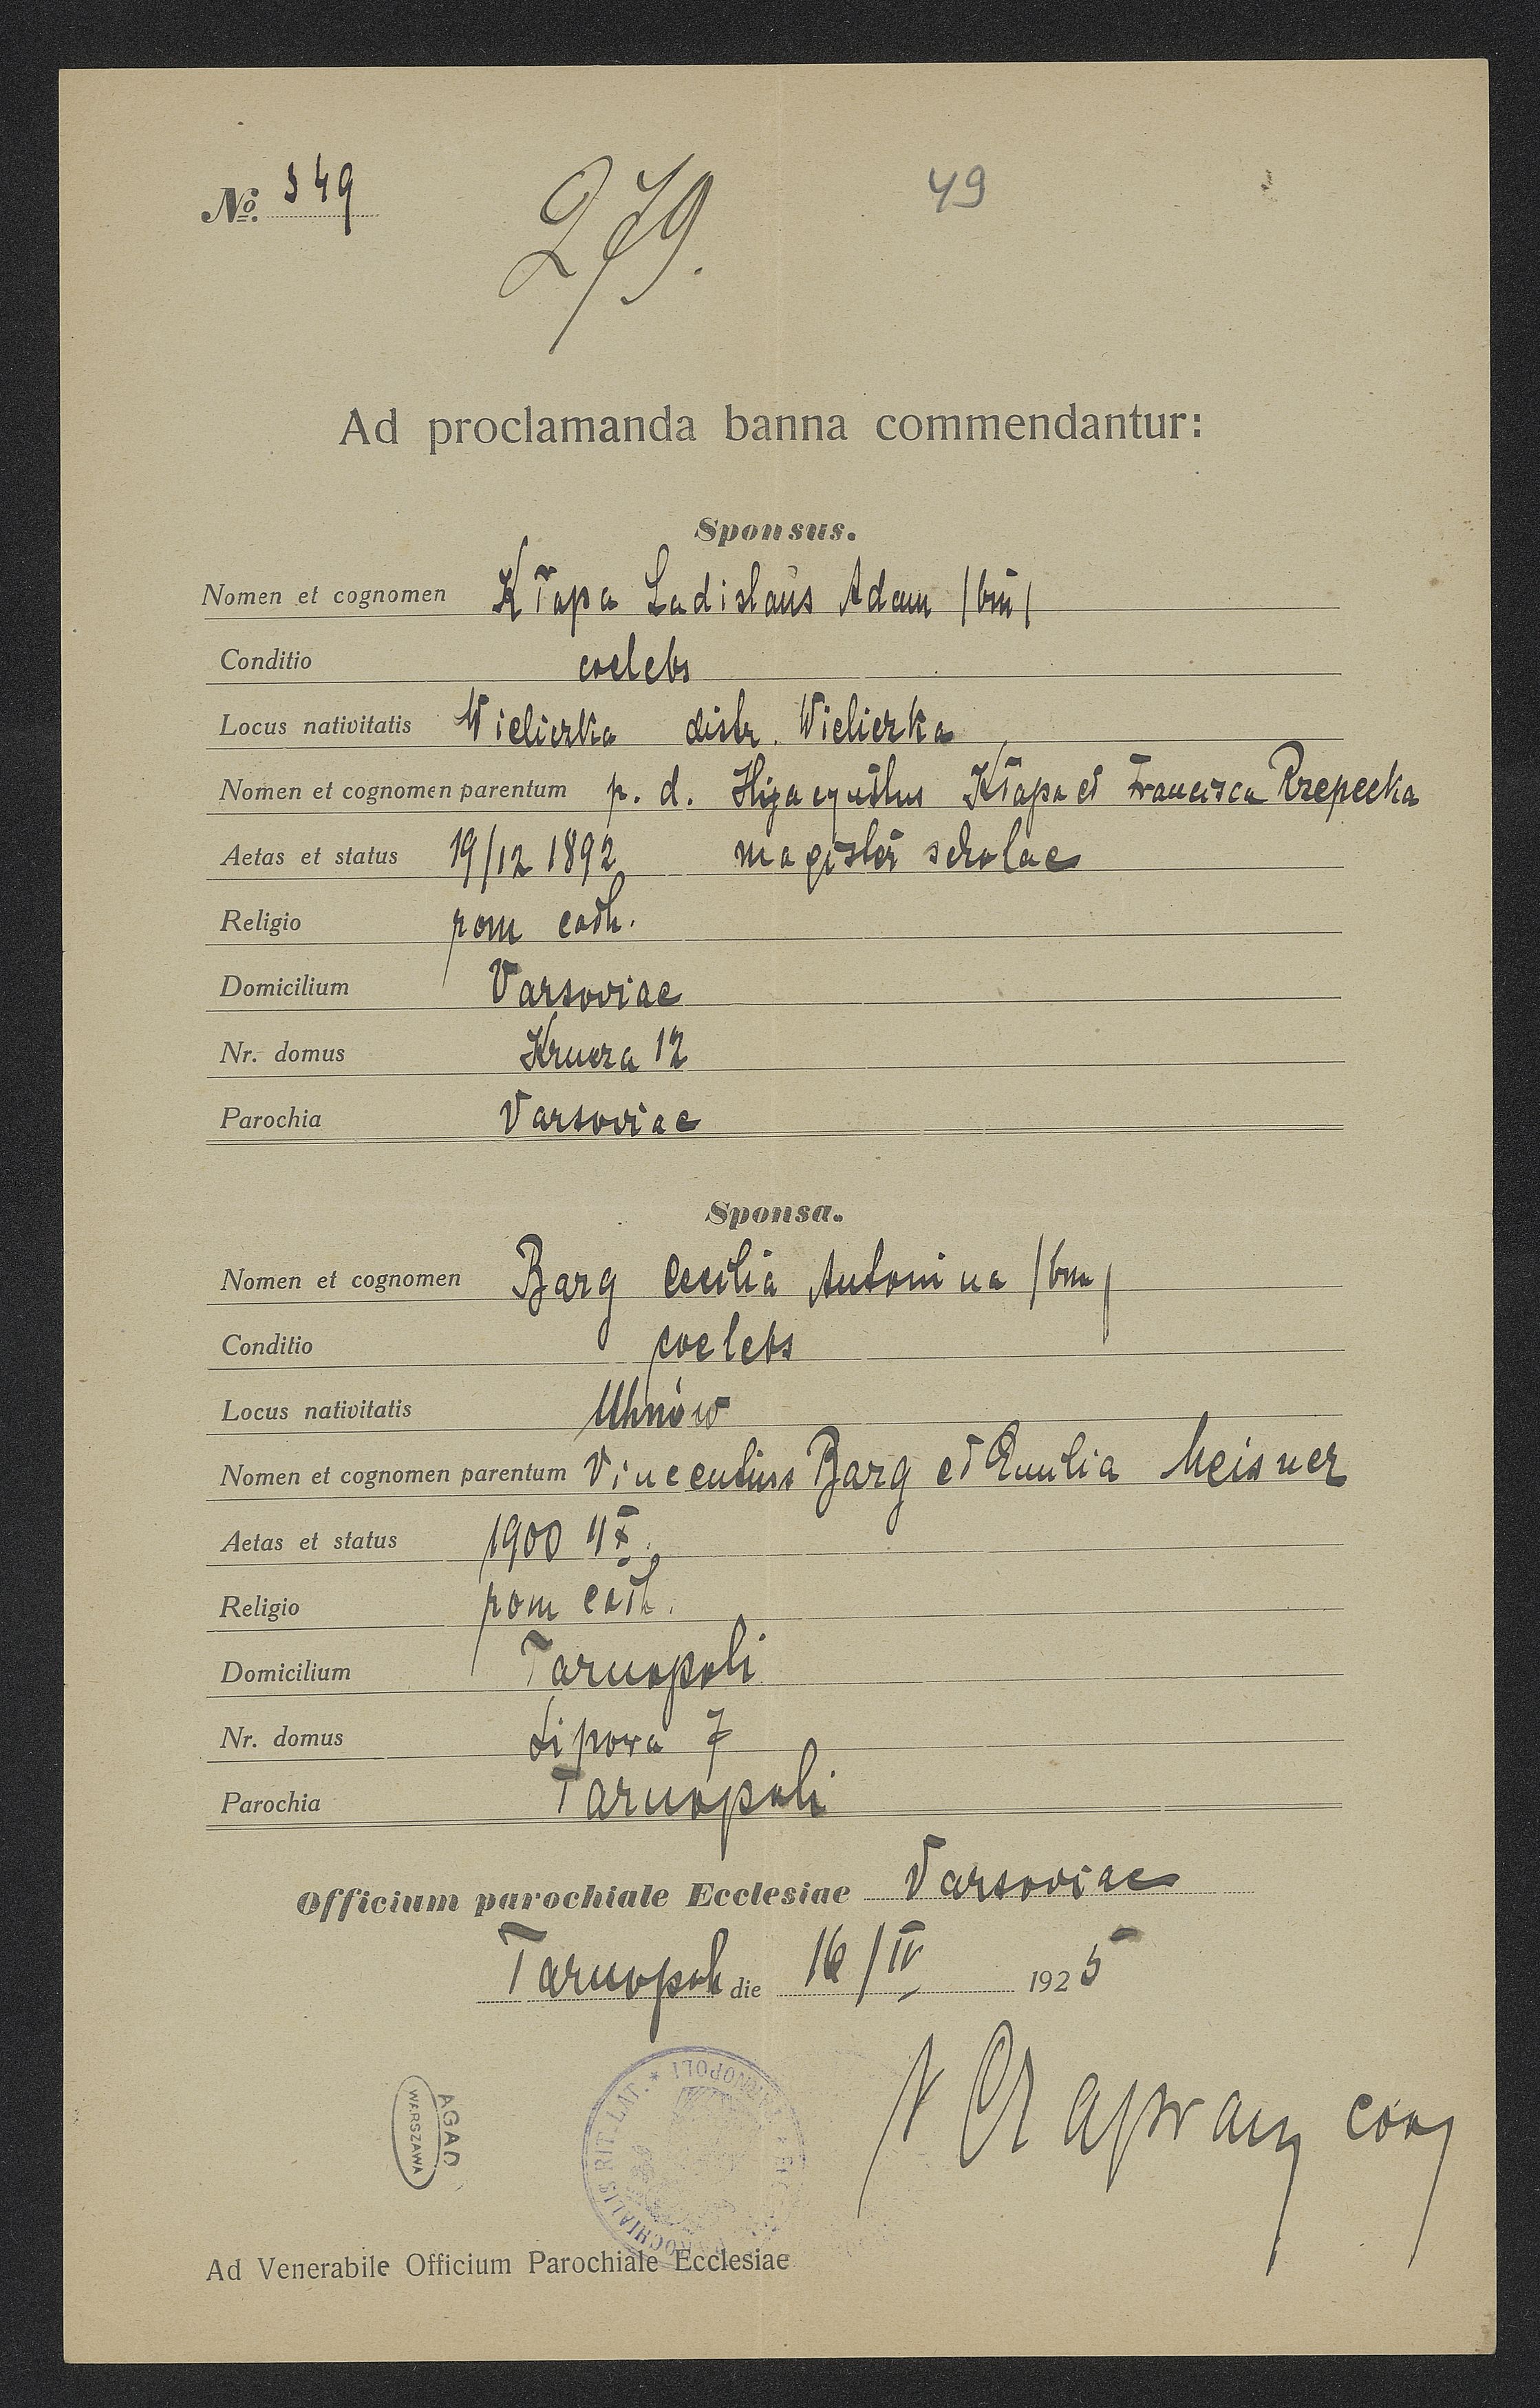 № 349
279.
49
Ad proclamanda banna commendantur:
Sponsus.
Nomen et cognomen Kłapa Ladislaus Adam /bin/
Conditio coelebs
Locus nativitatis Wieliczka distr. Wieliczka
Nomen et cognomen parentum p. d. Kłapa et Francisca Rzepecka
Aetas et status 19/12 1892 magister scholae
Religio rom cath.
Domicilium Varsoviae
Nr. domus Krucza 12
Parochia Varsoviae
Sponsa.
Nomen et cognomen Barg Cecilia Antonina /bin/
Conditio coelebs
Locus nativitatis Uhnów
Nomen et cognomen parentum Vincentius Barg et Emilia Meisner
Aetas et status 1900
Religio rom cath.
Domicilium Tarnopoli
Nr. domus Lipowa 7
Parochia Tarnopoli
Officium parochiale Ecclesiae Varsoviae
Tarnopoli die 16/IV 1925
AGAD
WARSZAWA
PAROCHIALIS RIT. LAT. * TARNOPOLI *
Ad Venerabile Officium Parochiale Ecclesiae